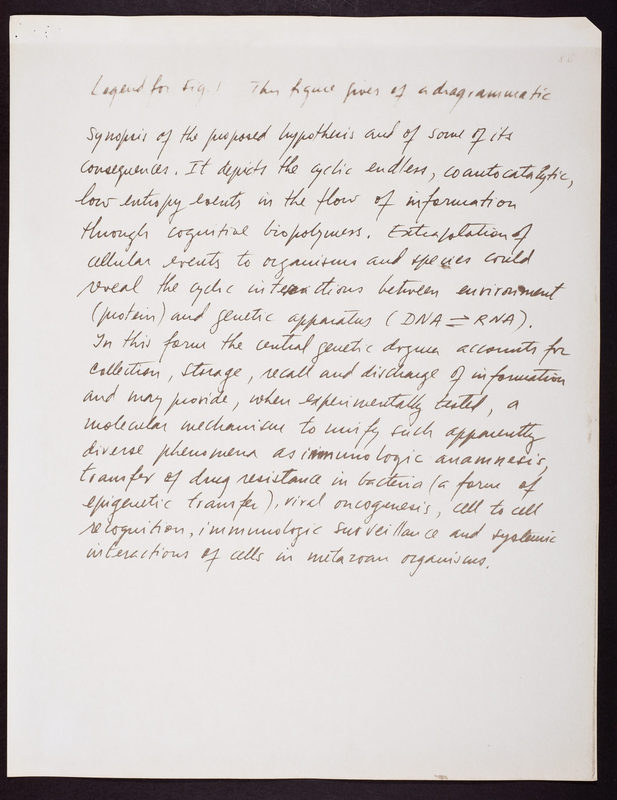 Legend for Fig. 1 This figure gives of a diagrammatic
synopsis of the proposed hypothesis and of some of its
consequences. It depicts the cyclic endless, coautocatalytic,
low entropy events in the flow of information
through cognitive biopolymers. Extrapolation of
cellular events to organisms and species could
reveal the cyclic interactions between environment
(protein) and genetic apparatus (DNA ⇌ RNA).
In this form the central genetic dogma accounts for
collection, storage, recall and discharge of information
and may provide, when experimentally tested, a
molecular mechanism to unify such apparently
diverse phenomena as immunologic anamnesis,
transfer of drug resistance in bacteria (a form of
epigenetic transfer), viral oncogenesis, cell to cell
recognition, immunologic surveillance and systemic
interactions of cells in metazoan organisms.